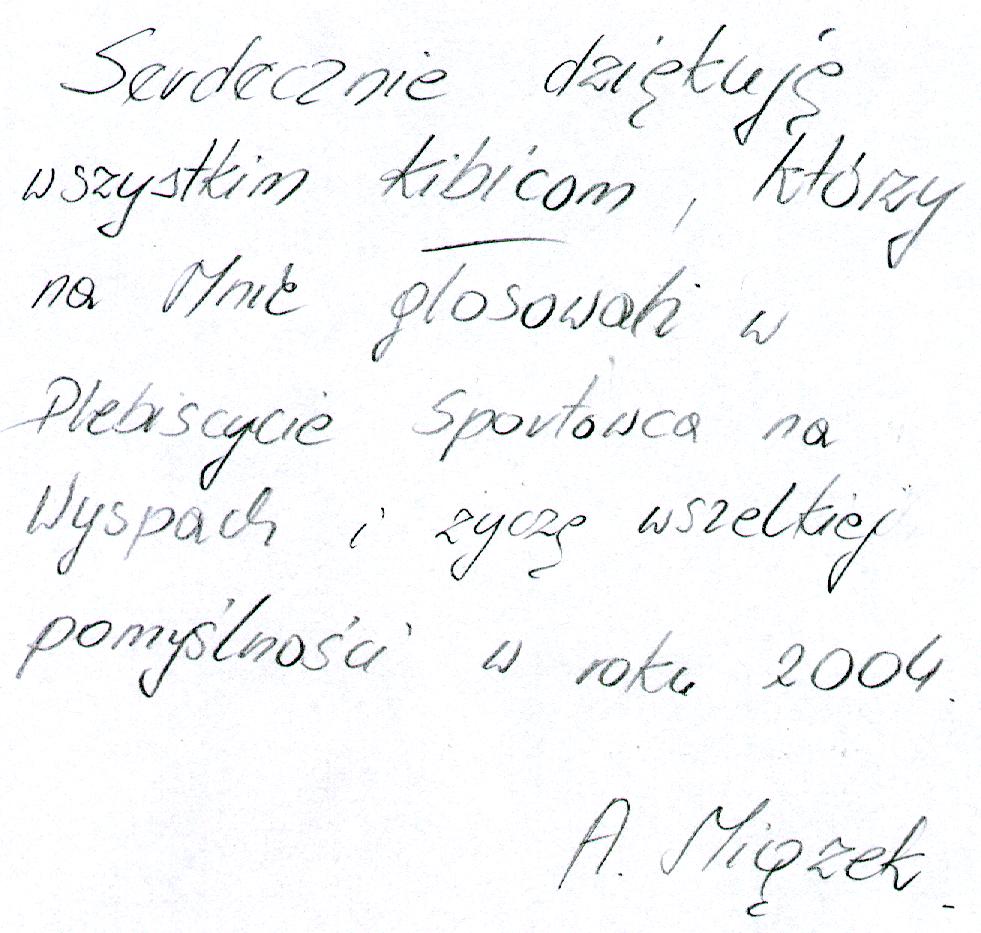 Serdecznie dziękuję
wszystkim kibicom, którzy
na Mnie głosowali w
Plebiscycie Sportowca na
Wyspach i życzę wszelkiej
pomyślności w roku 2004.
A. Miązek.